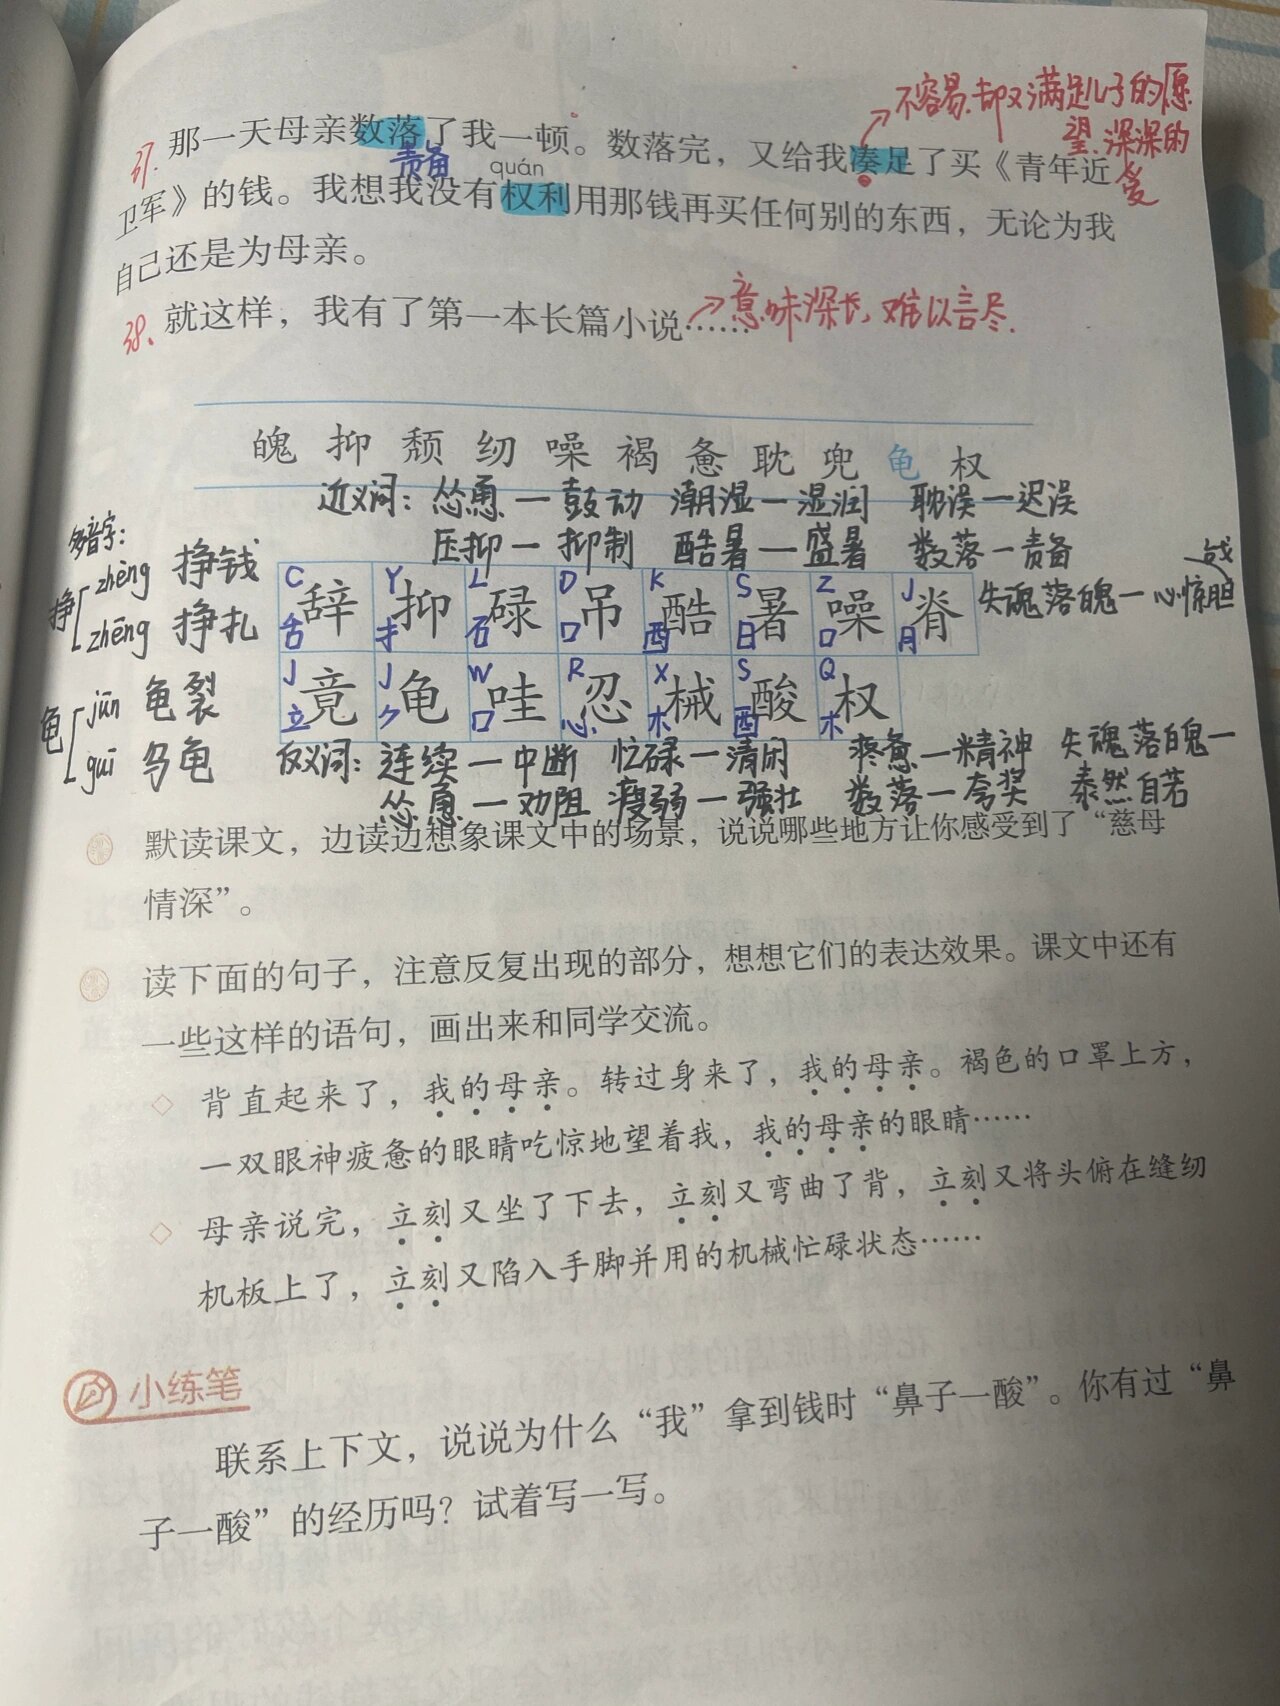 不容易,却又满足儿子的愿
望,深深的
爱
37. 那一天母亲数落了我一顿。数落完，又给我凑足了买《青年近
责备
quán
卫军》的钱。我想我没有权利用那钱再买任何别的东西，无论为我
自己还是为母亲。
38. 就这样，我有了第一本长篇小说……
意味深长,难以言尽.
魄 抑 颓 纫 噪 褐 惫 耽 兜 龟 权
近义词：怂恿—鼓动 潮湿—湿润 耽误—迟误
压抑—抑制 酷暑—盛暑 数落—责备
失魂落魄—心惊胆
战
多音字：
挣 zhèng 挣钱
zhēng 挣扎
龟 jūn 龟裂
guī 乌龟
C Y L D K S Z J
辞 抑 碌 吊 酷 暑 噪 脊
舌 扌 石 口 酉 日 口 月
J J W R X S Q
竟 龟 哇 忍 械 酸 权
立 ⺈ 口 心 木 酉 木
反义词：连续—中断 忙碌—清闲 疼惫—精神 失魂落魄—
怂恿—劝阻 瘦弱—强壮 数落—夸奖 泰然自若
默读课文，边读边想象课文中的场景，说说哪些地方让你感受到了“慈母
情深”。
读下面的句子，注意反复出现的部分，想想它们的表达效果。课文中还有
一些这样的语句，画出来和同学交流。
◇ 背直起来了，我的母亲。转过身来了，我的母亲。褐色的口罩上方，
一双眼神疲惫的眼睛吃惊地望着我，我的母亲的眼睛……
◇ 母亲说完，立刻又坐了下去，立刻又弯曲了背，立刻又将头俯在缝纫
机板上了，立刻又陷入手脚并用的机械忙碌状态……
小练笔
联系上下文，说说为什么“我”拿到钱时“鼻子一酸”。你有过“鼻
子一酸”的经历吗？试着写一写。